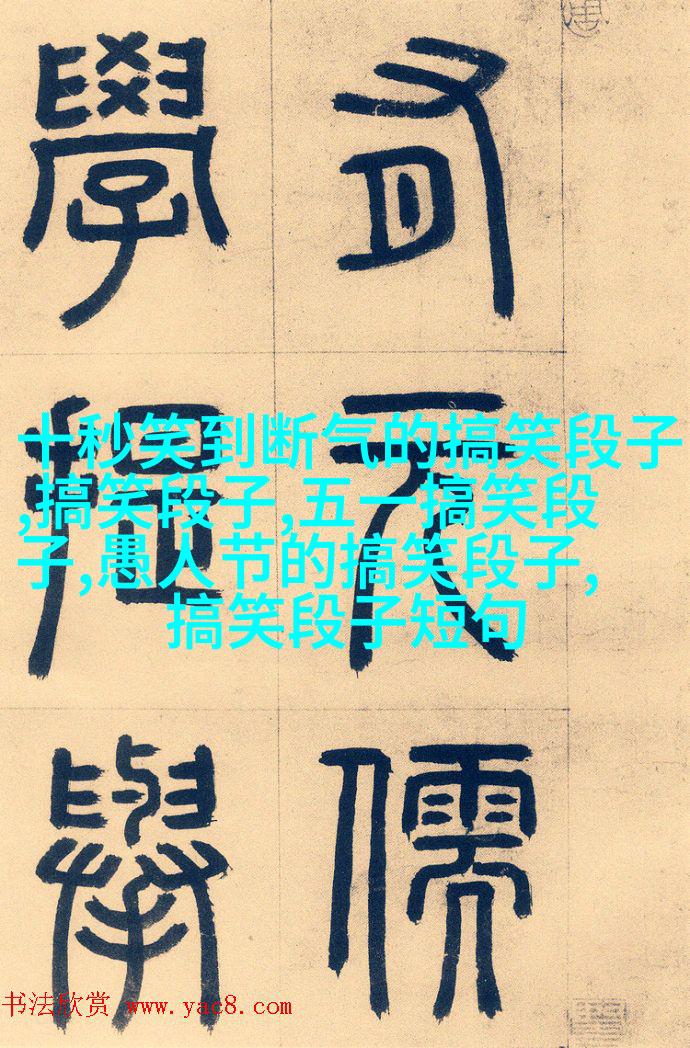 有
元
儒
學
提
舉
十秒笑到断气的搞笑段子
,搞笑段子,五一搞笑段
子,愚人节的搞笑段子,
搞笑段子短句
书法欣赏 www.yac8.com